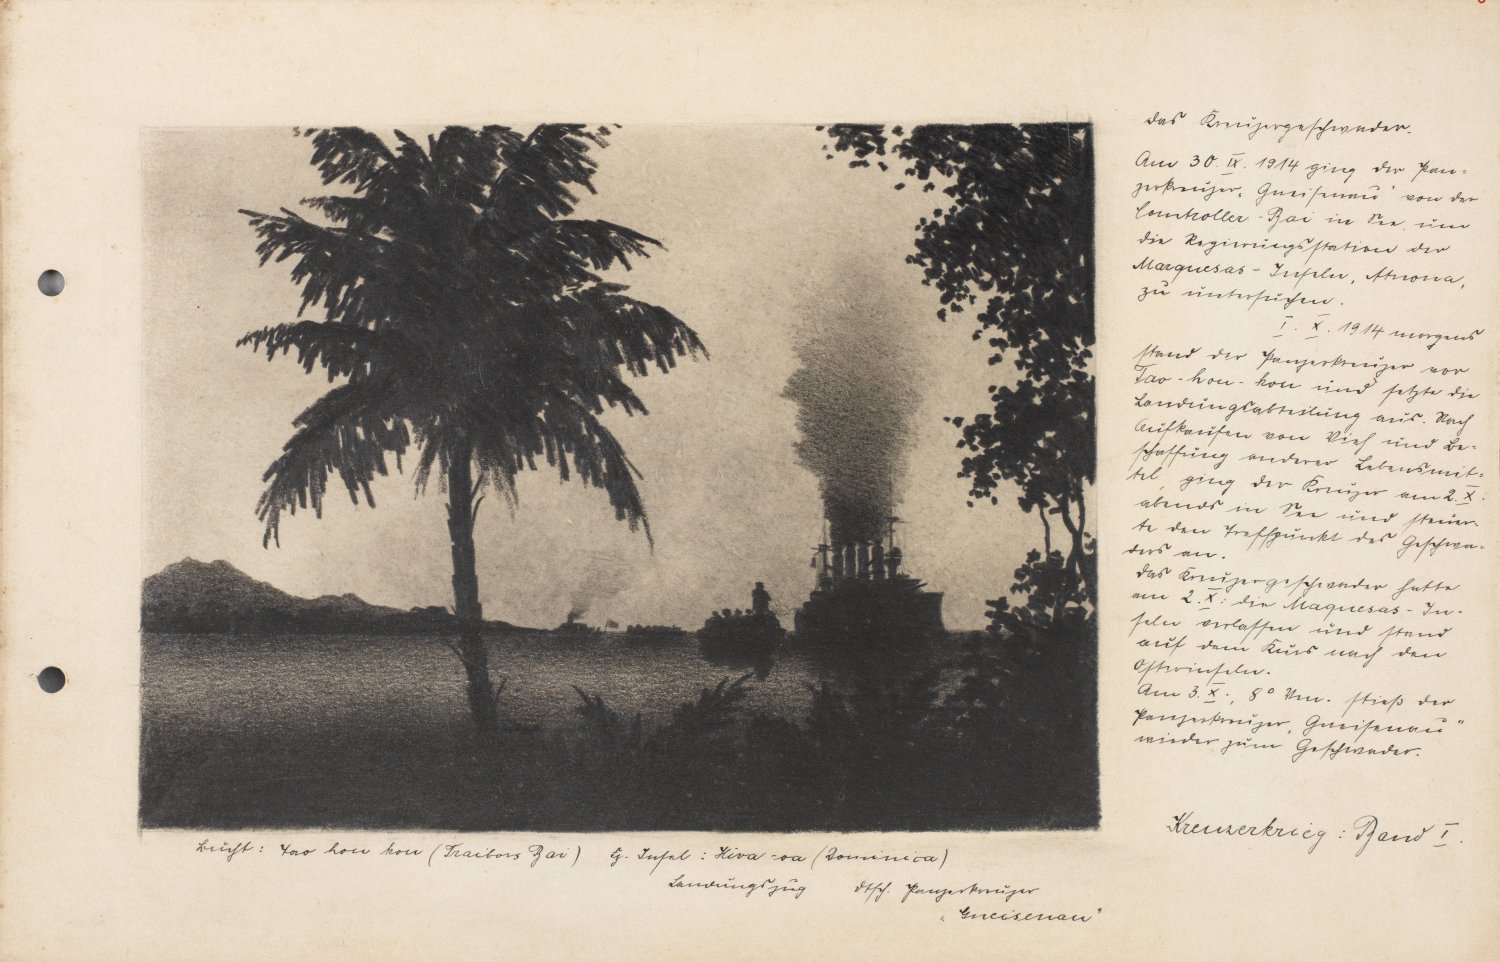 das Kreuzergeschwader.
Am 30. IX. 1914 ging der Pan-
zerkreuzer „Gneisenau“ von der
Comtroller-Bai in See, um
die Regierungsstation der
Marquesas-Inseln, Atuona,
zu untersuchen.
I. X. 1914 morgens
stand der Panzerkreuzer vor
Tao-hou-kou und setzte die
Landungsabteilung aus. Nach
Aufkaufen von Vieh und Be-
schaffung anderer Lebensmit-
tel, ging der Kreuzer am 2. X.
abends in See und steuer-
te den Treffpunkt des Geschwa-
ders an.
Das Kreuzergeschwader hatte
am 2. X. die Maquesas-In-
seln verlassen und stand
auf dem Kurs nach den
Osterinseln.
Am 3. X., 8° Vm. stieß der
Panzerkreuzer „Gneisenau“
wieder zum Geschwader.
Kreuzerkrieg: Band I.
Bucht: Tao hou kou (Traitors Bai) Insel: Hiva-oa (Dominica)
Landungszug dtsch. Panzerkreuzer
„Gneisenau“